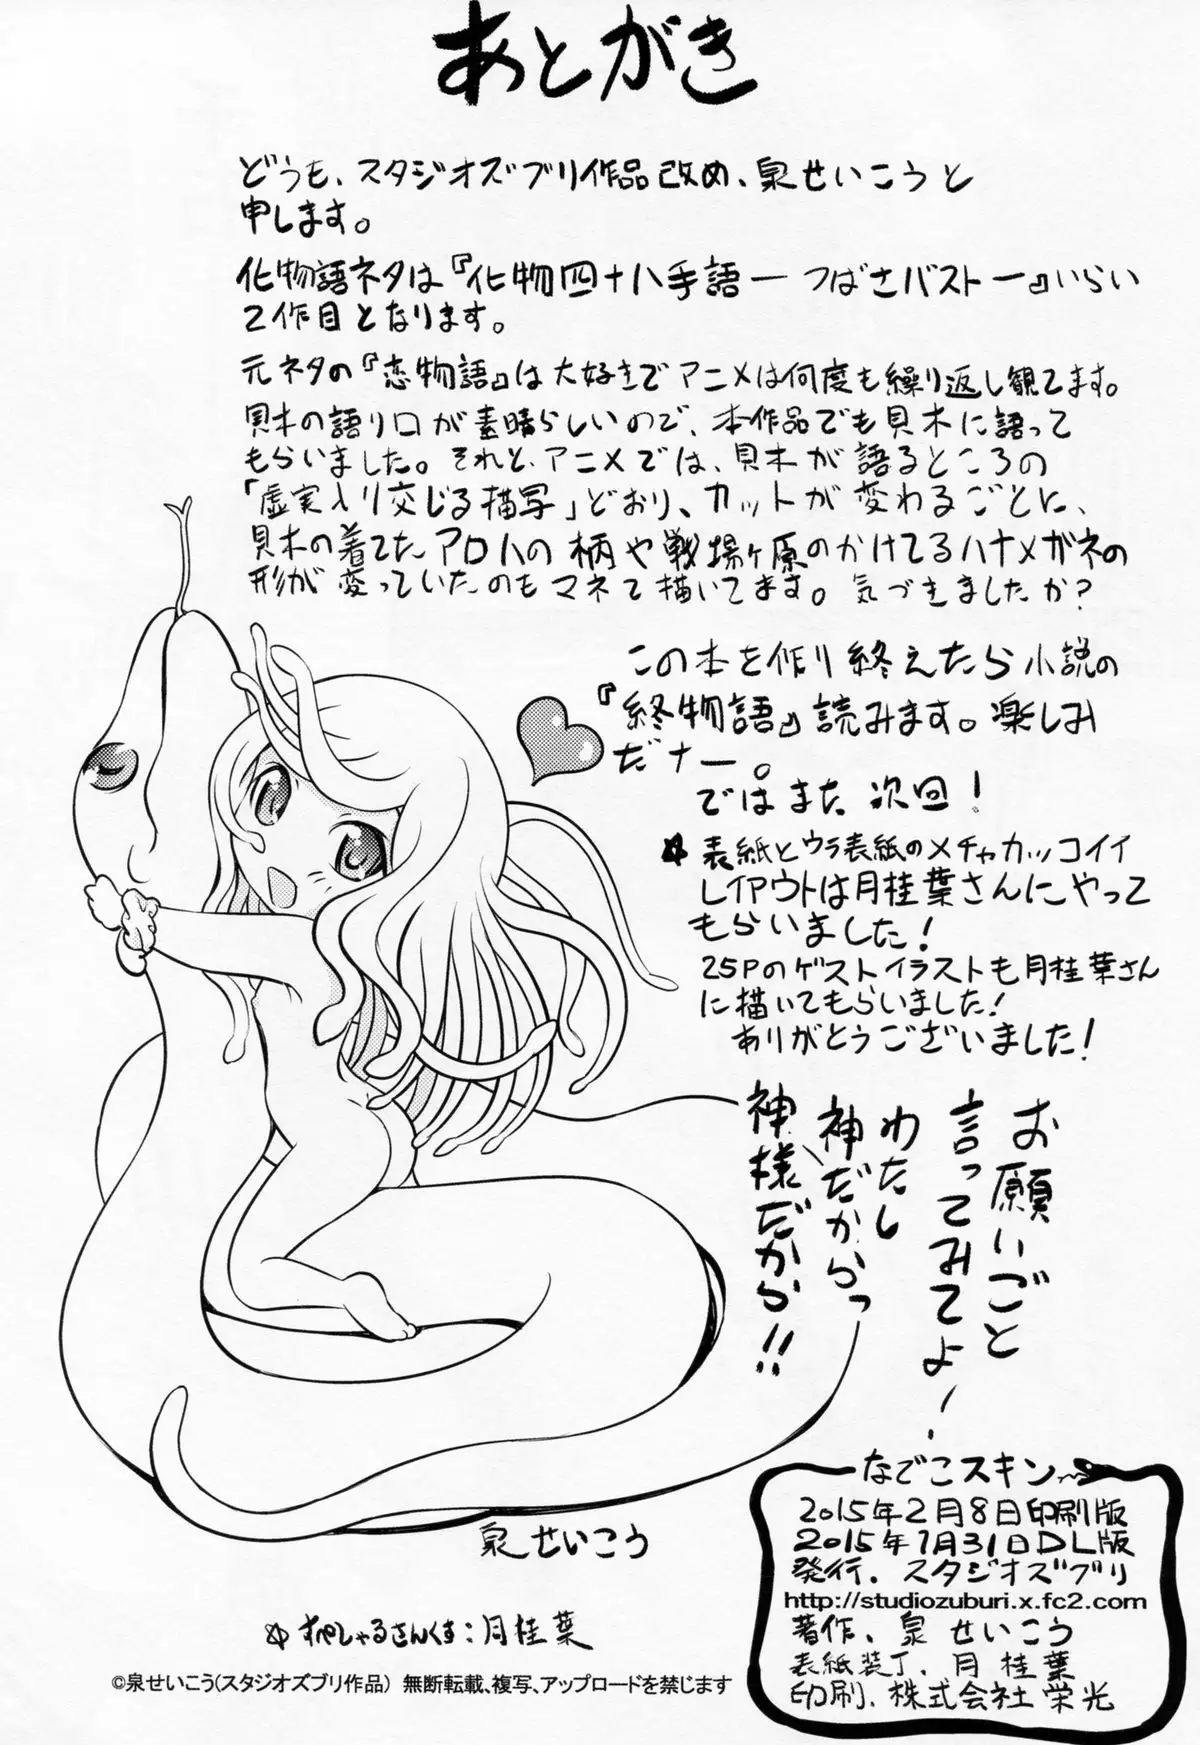 あとがき
どうも、スタジオズブリ作品改め、泉せいこうと
申します。
化物語ネタは『化物四十八手語ー つばさバストー』いらい
2作目となります。
元ネタの『恋物語』は大好きでアニメは何度も繰り返し観てます。
貝木の語り口が素晴らしいので、本作品でも貝木に語って
もらいました。それと、アニメでは、貝木が語るところの
「虚実入り交じる描写」どおり、カットが変わるごとに、
貝木の着てたアロハの柄や戦場ヶ原のかけてるハナメガネの
形が変っていたのもマネて描いてます。気づきましたか?
この本を作り終えたら小説の
『終物語』読みます。楽しみ
だナー。
ではまた次回!
☆表紙とウラ表紙のメチャカッコイイ
レイアウトは月桂葉さんにやって
もらいました!
25Pのゲストイラストも月桂葉さん
に描いてもらいました!
ありがとうございました!
お願いごと
言ってみてよ!
わたし
神だからっ
神様だから!!
泉せいこう
☆すぺしゃるさんくす:月桂葉
©泉せいこう(スタジオズブリ作品) 無断転載、複写、アップロードを禁じます
なでこスキン
2015年2月8日印刷版
2015年1月31日DL版
発行、スタジオズブリ
http://studiozuburi.x.fc2.com
著作、泉せいこう
表紙装丁、月桂葉
印刷、株式会社栄光